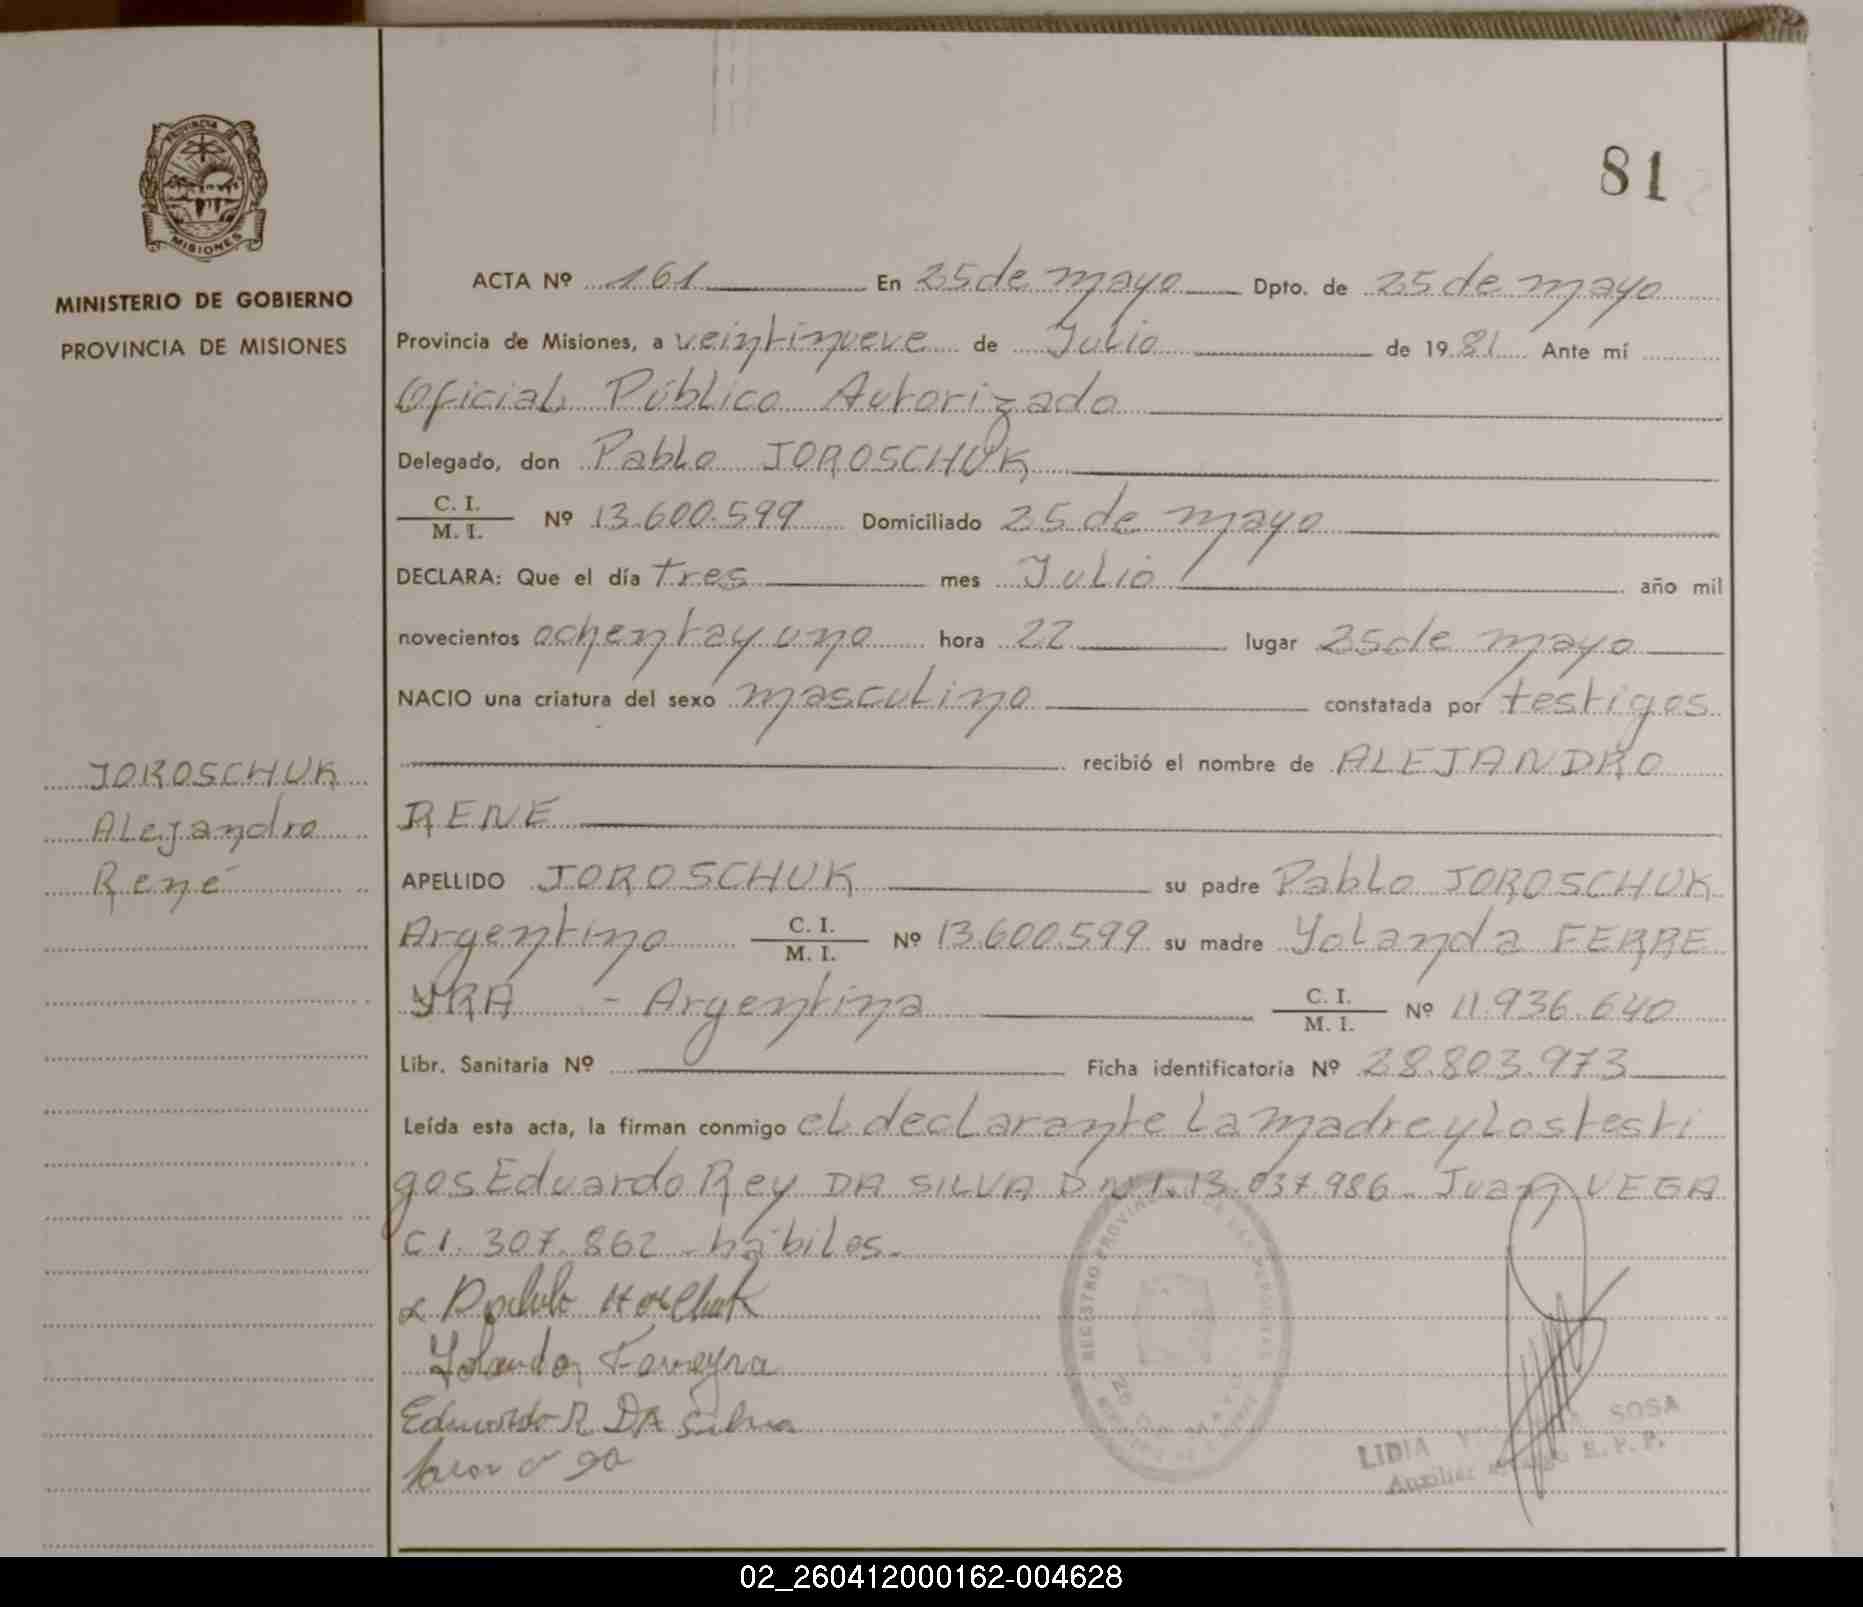 81
PROVINCIA DE
MISIONES
MINISTERIO DE GOBIERNO
PROVINCIA DE MISIONES
JOROSCHUK
Alejandro
René
ACTA Nº 161 En 25 de mayo Dpto. de 25 de mayo
Provincia de Misiones, a veintinueve de Julio de 1981 Ante mí
Oficial Público Autorizado
Delegado, don Pablo JOROSCHUK
C. I.
M. I. Nº 13.600.599 Domiciliado 25 de mayo
DECLARA: Que el día tres mes Julio año mil
novecientos ochenta y uno hora 22 lugar 25 de mayo
NACIO una criatura del sexo masculino constatada por testigos
recibió el nombre de ALEJANDRO
RENE
APELLIDO JOROSCHUK su padre Pablo JOROSCHUK
Argentino C. I. M. I. Nº 13.600.599 su madre Yolanda FERRE
YRA - Argentina C. I. M. I. Nº 11.936.640
Libr. Sanitaria Nº Ficha identificatoria Nº 28.803.973
Leída esta acta, la firman conmigo el declarante la madre y los testi
gos Eduardo Rey DA SILVA D.N.I. 13.037.986 - Juan VEGA
C I. 307.862 - hábiles.
Yolanda Ferreyra
Eduardo R DA Silva
REGISTRO PROVINCIAL DE LAS PERSONAS
LIDIA SOSA
Auxiliar R. P. P.
02_260412000162-004628